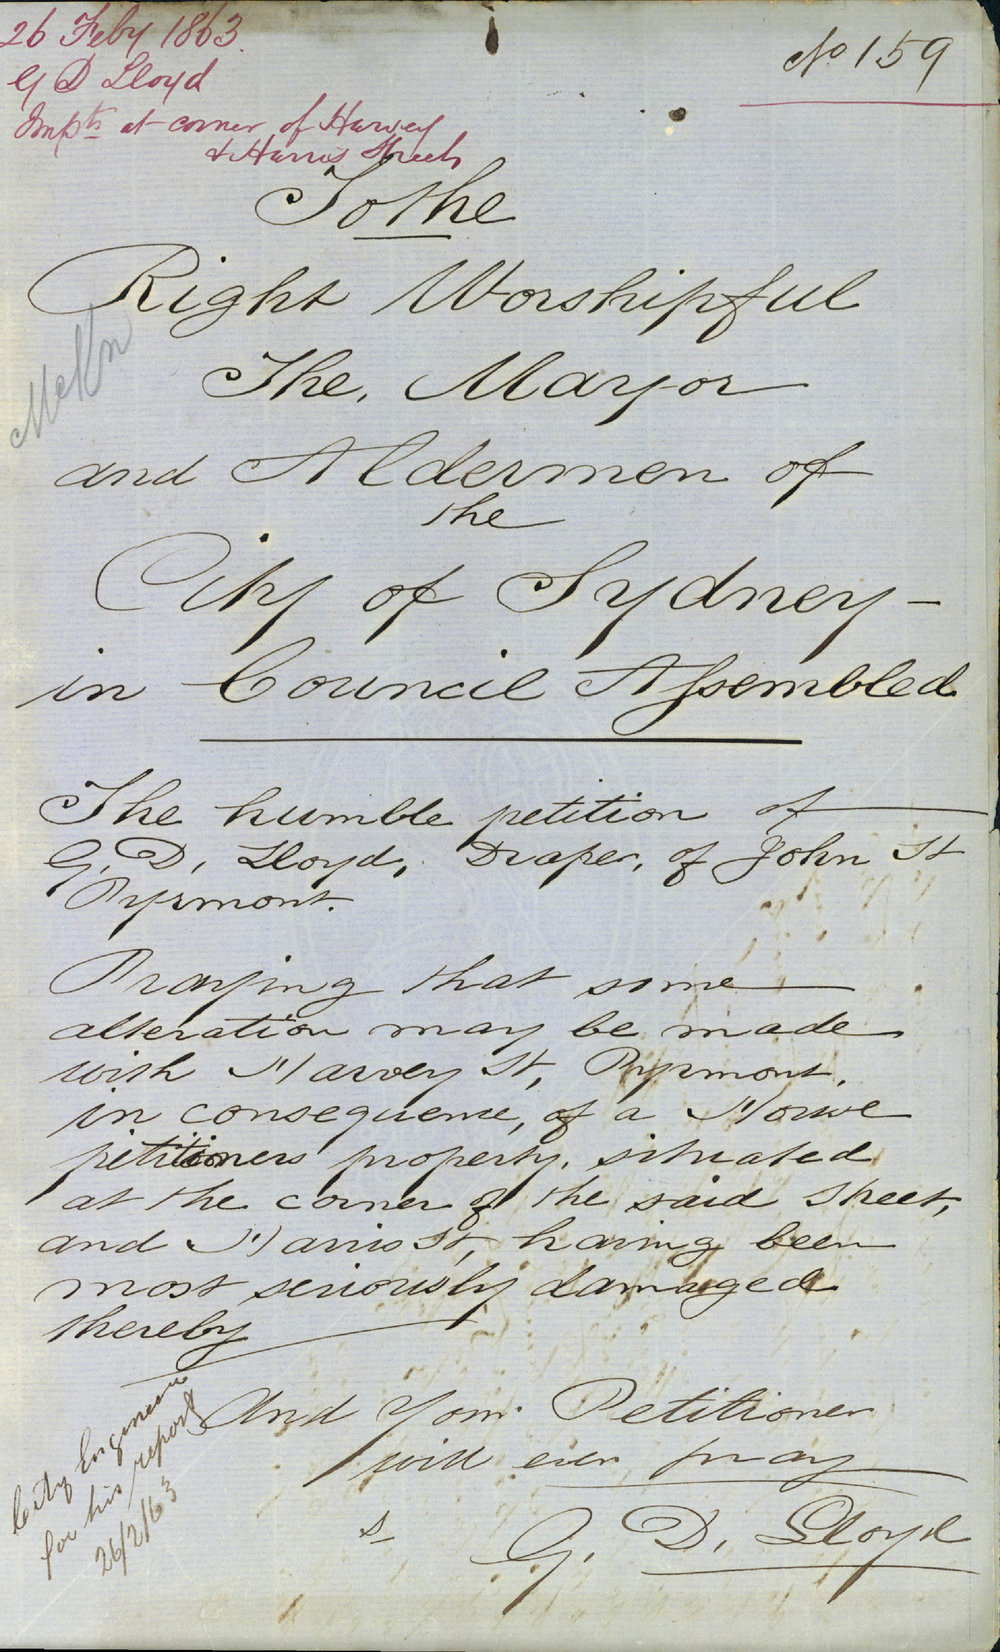 26 Feby 1863.
G D Lloyd
Impts at corner of Harvey
& Harris Streets
No 159
To the
Right Worshipful
The, Mayor
and Aldermen of
the
City of Sydney -
in Council Assembled
The humble petition of
G. D, Lloyd, Draper, of John St
Pyrmont.
Praying that some
alteration may be made
with Harvey St, Pyrmont,
in consequence, of a House
petitioners property, situated
at the corner of the said Street,
and Harris St, having been
most seriously damaged
thereby
And Your Petitioner
will ever pray
G. D, Lloyd
City Engineer
for his report
26/2/63